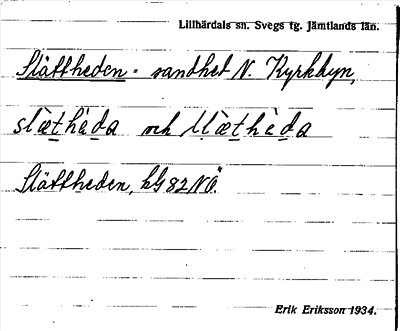 Lillhärdals sn. Svegs tg. Jämtlands län.
Slättheden - sandhed N. Kyrkbyn,
slæ̀tḥèḍa och
Slättheden, bG 82 NÖ.
Erik Eriksson 1934.